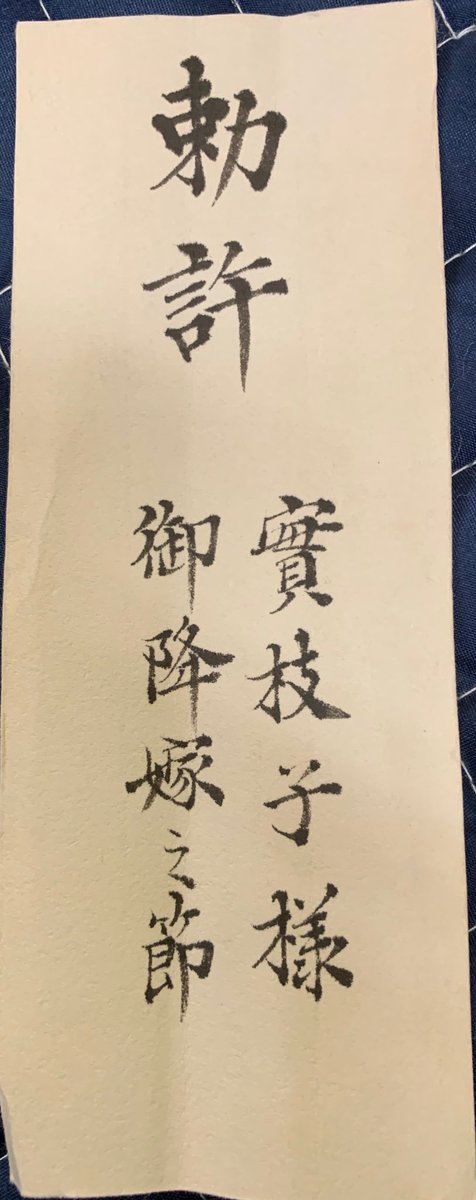 勅許
實枝子様
御降嫁之節